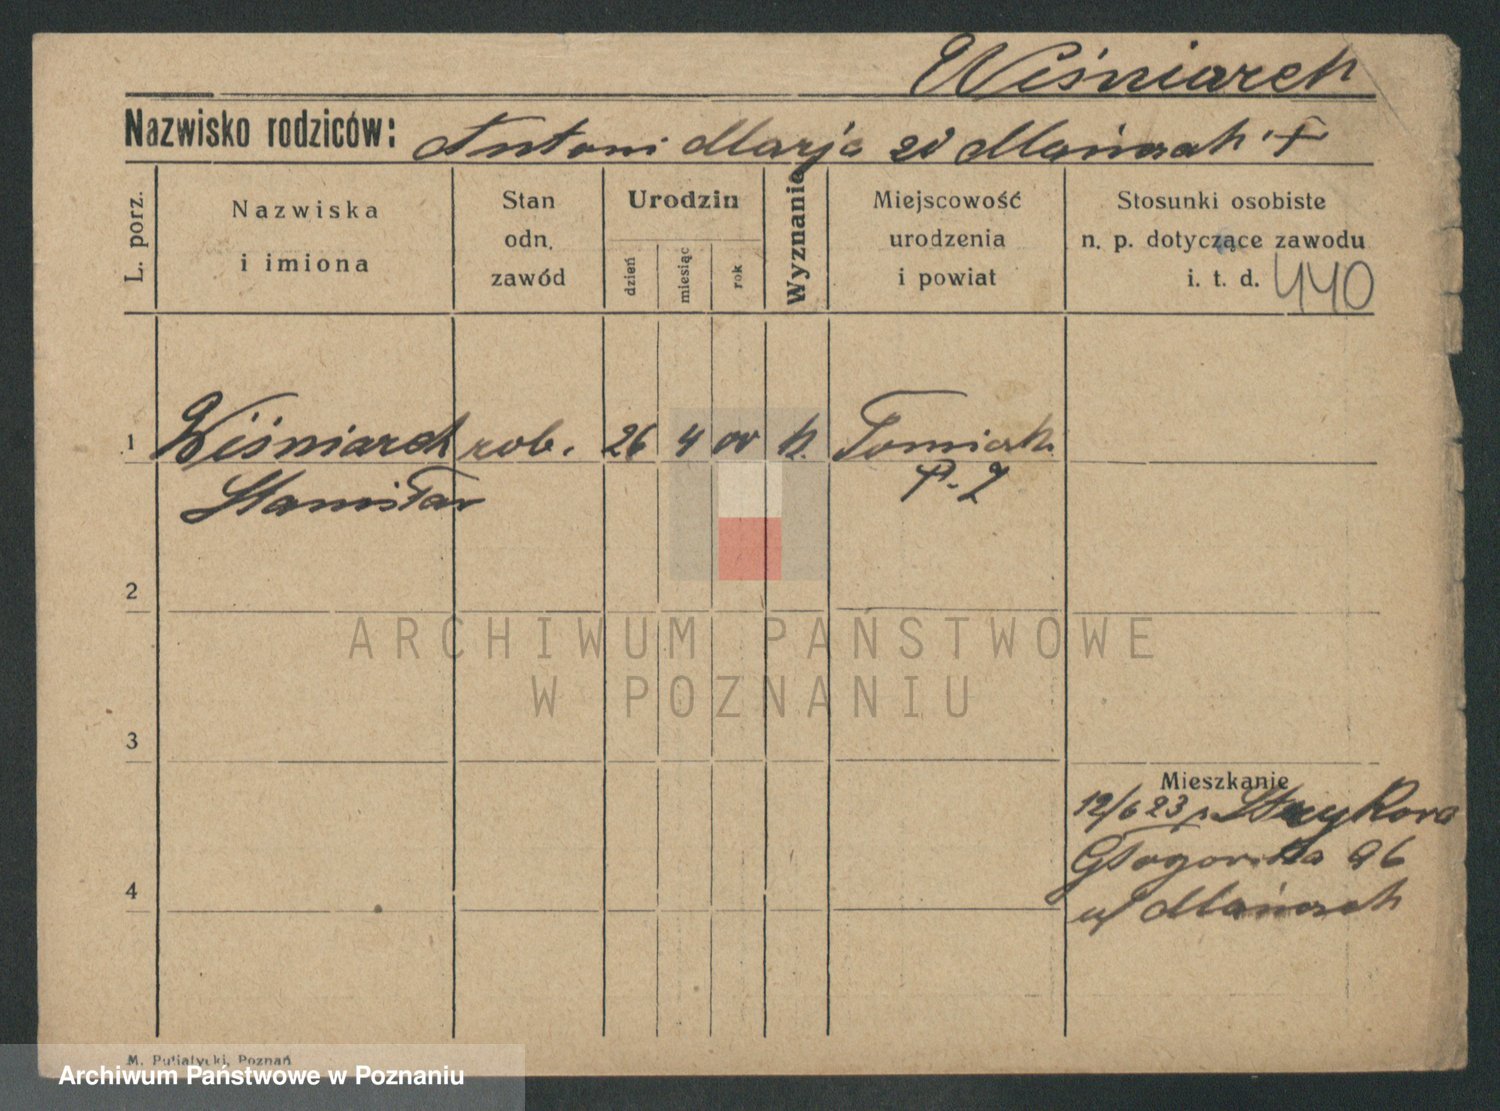 Wiśniarek
Nazwisko rodziców: Antoni Marja zd Mańczak
L. porz.
Nazwiska
i imiona
Stan
odn.
zawód
Urodzin
dzień
miesiąc
rok
Wyznanie
Miejscowość
urodzenia
i powiat
Stosunki osobiste
n. p. dotyczące zawodu
i. t. d. 440
1 Wiśniarek rob. 26 4 00 k.
Stanisław
2
ARCHIWUM PAŃSTWOWE
W POZNANIU
3
Mieszkanie
12/6 23
96
4
u/ Mańczak
M. Putiatycki, Poznań
Archiwum Państwowe w Poznaniu